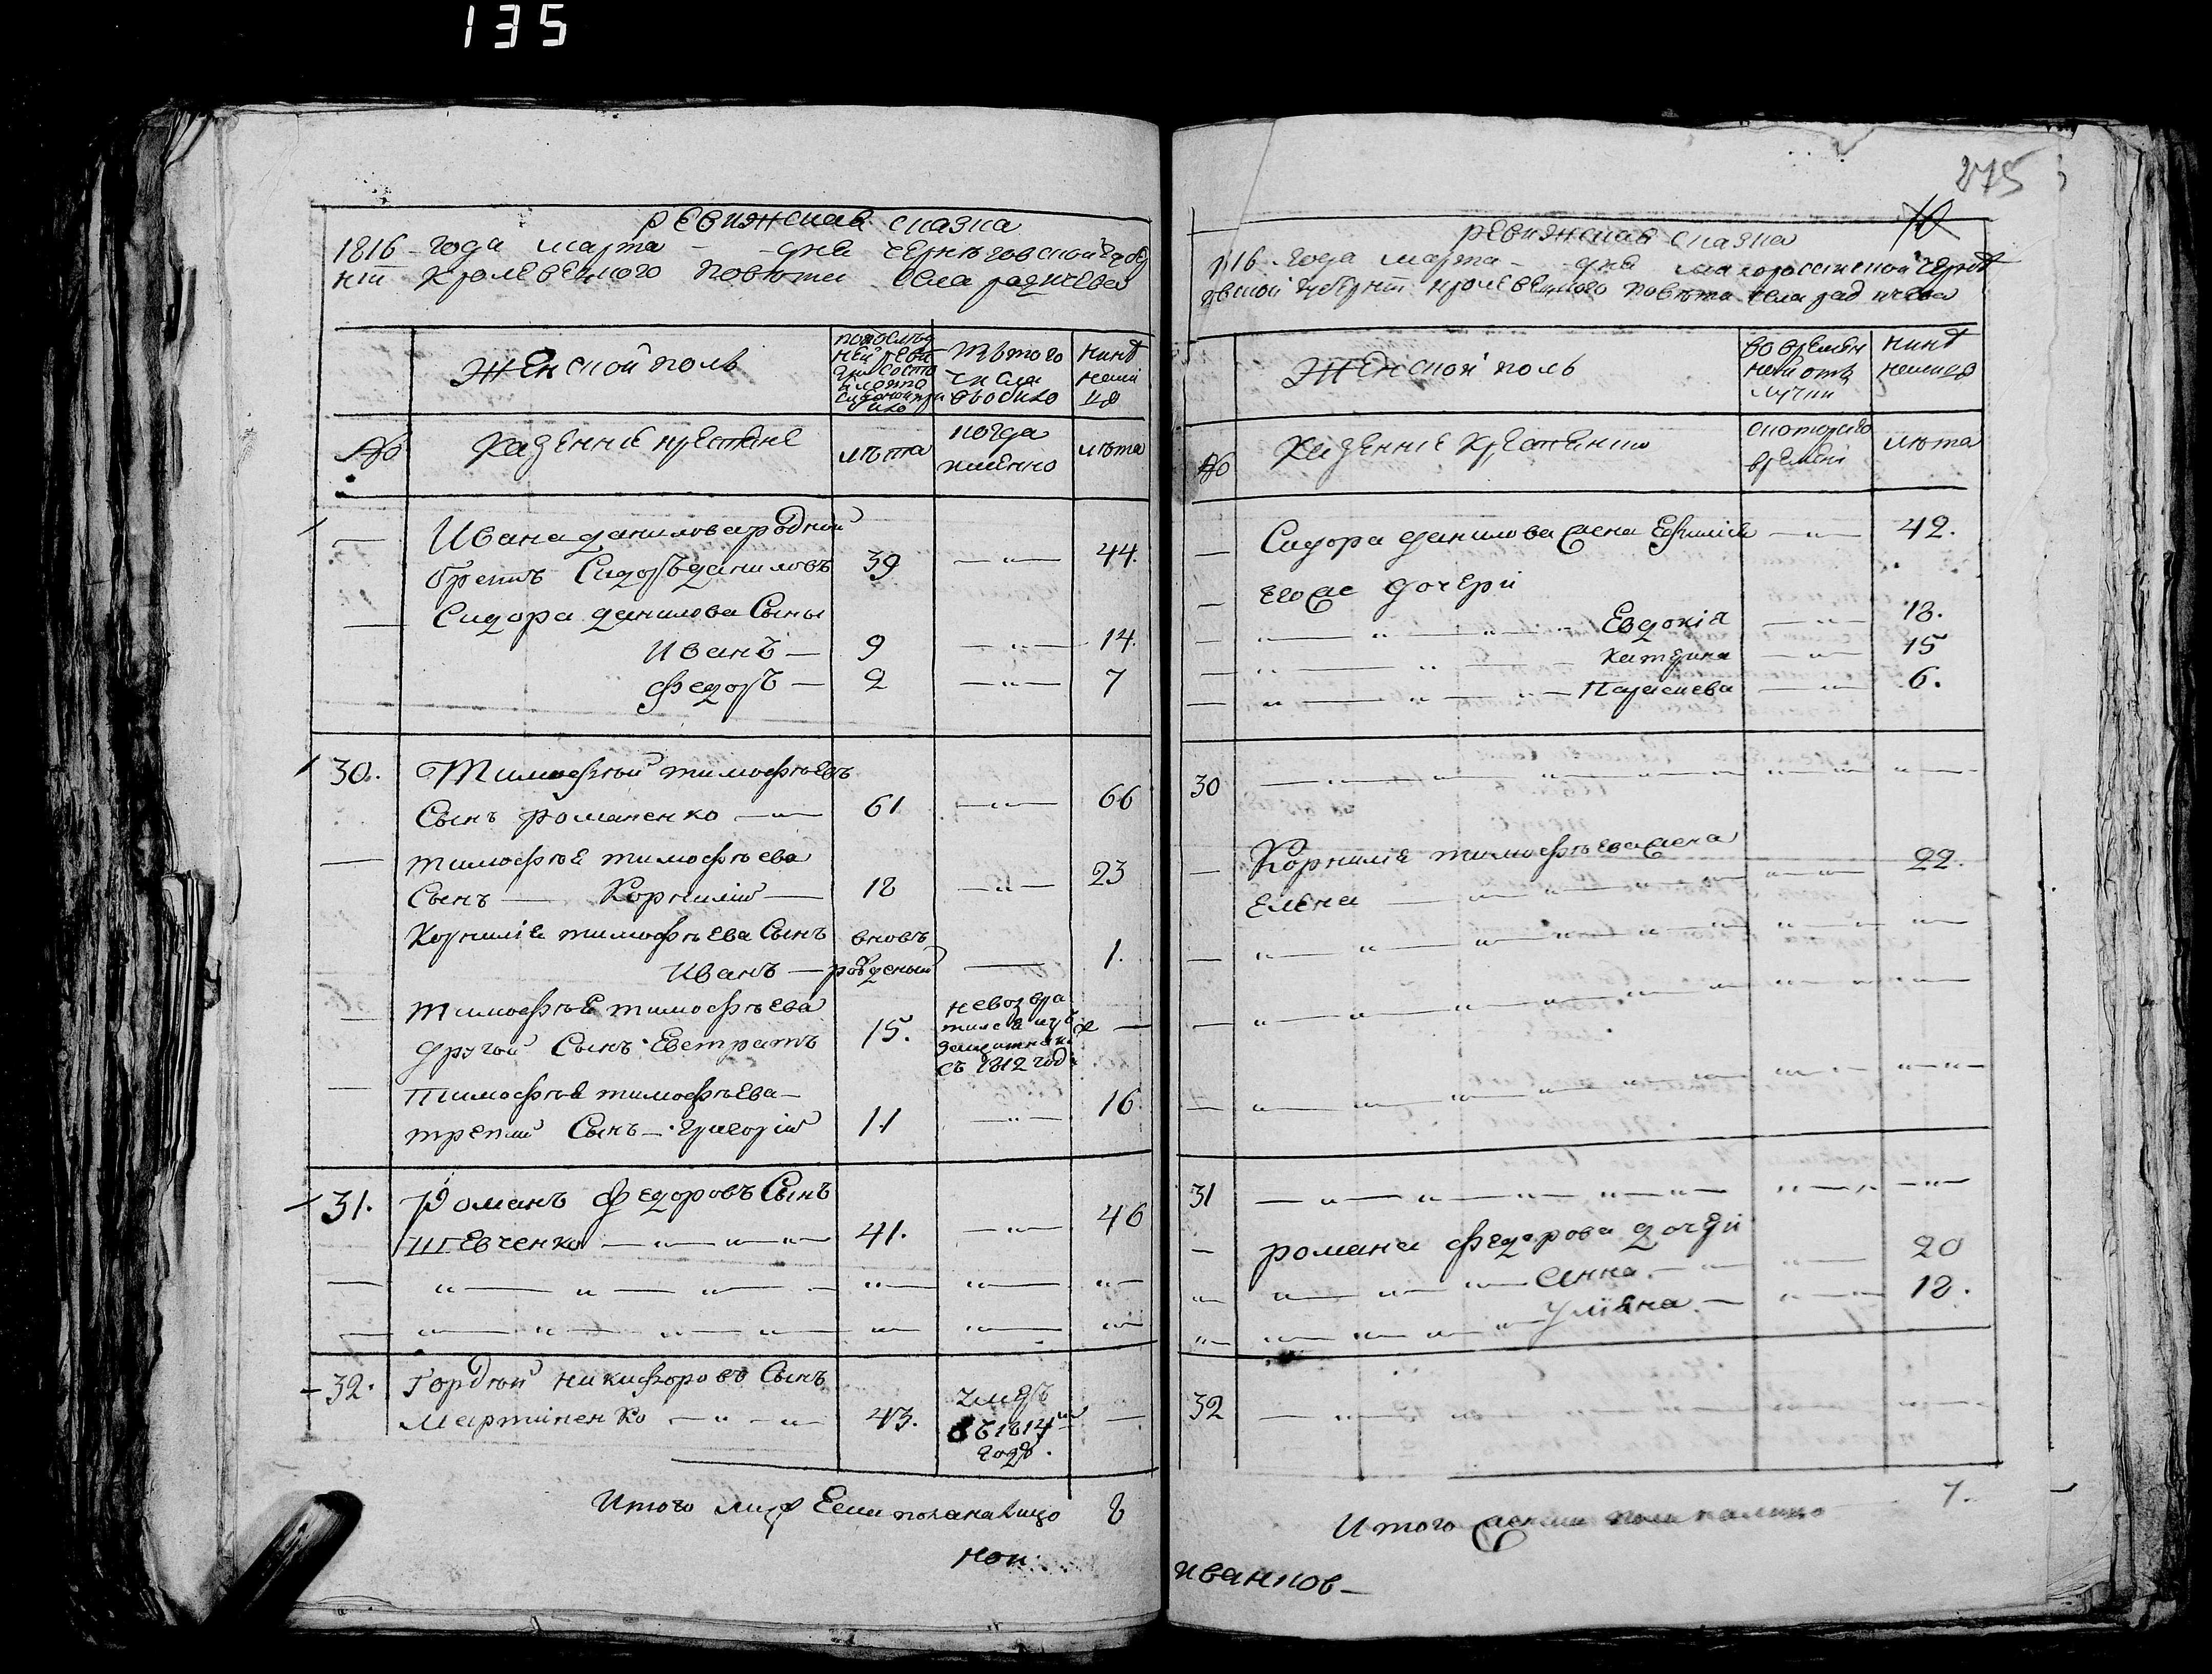 135
ревижская сказка
1816 года марта — дня черниговской губер
ніи кролевецкого повѣта села радичева
женской полъ
по послѣд
ней реви
зіи состо
яло
изъ того
числа
выбило
нынѣ
налицо
№
Казенніе крестяне
лѣта
когда
именно
лѣта
Ивана данилова родной
братъ Сидоръ даниловъ 39 — „ — 44.
Сидора данилова Сыны
Иванъ — 9 — „ — 14.
федоръ — 2 — „ — 7
30. Тимофѣй тимофѣевъ
Сынъ романенко — „ — 61 — „ — 66
тимофѣя тимофѣева
Сынъ — Корнилій — 18 — „ — 23
Корнилія тимофѣева Сынъ вновь
Иванъ — рожденый — 1.
тимофѣя тимофѣева
другой Сынъ Евстратъ 15.
невозвра
тился изъ
съ 1812 года
тимофѣя тимофѣева —
третій Сынъ — григорій 11 — „ — 16.
31. Романъ федоровъ Сынъ
Шевченко — „ — „ — „ 41. — „ — 46
32. Гордѣй никифоровъ Сынъ
Мартиненко — „ — „ 43. —
умеръ
въ 1814м
годѣ.
Итого мужеска пола налицо 8
коп.
275
10
ревижская сказка
1816 года марта — дня малороссійской черни
говской губерніи кролевецкого повѣта села радичева
женской полъ
во времен
ной отлу
чки
нынѣ
налицо
№
Казенніе Крестянки
с которого
времени
лѣта
— Сидора данилова жена Евфимія — „ — 42.
— его же дочери
Евдокія — „ — 18.
Катерина — „ — 15
Параскева — „ — 6.
30
— Корнилія тимофѣева жена
Елена — 22.
31
— романа федорова дочери
Анна — 20
Уліяна — 18.
32
Итого женска пола налицо 7.
иванков —